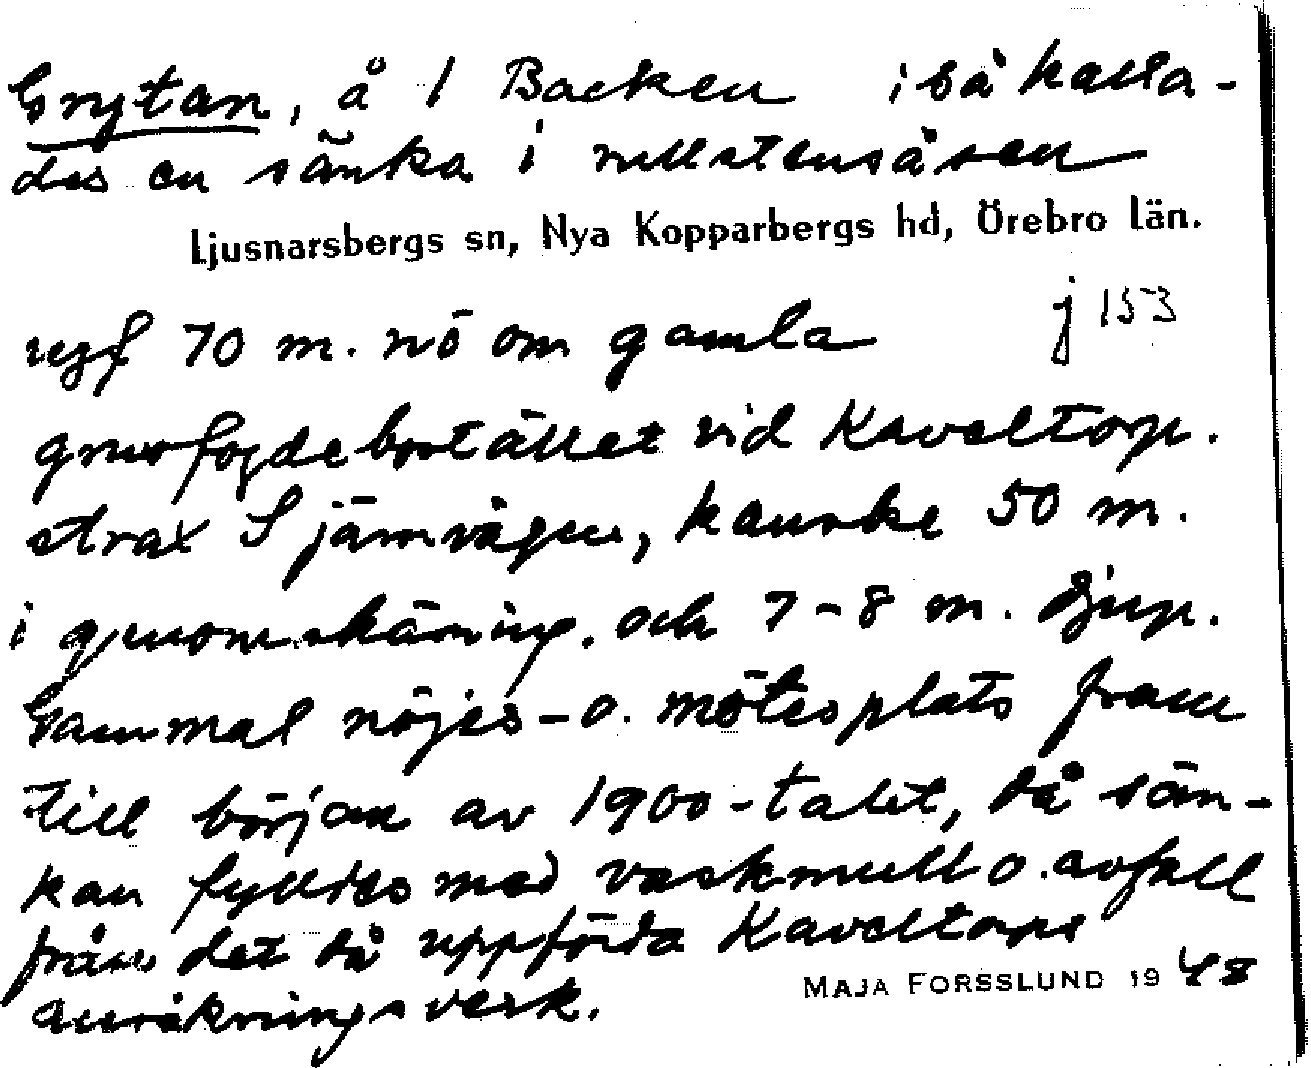 Grytan, å 1 Backen i så kalla-
des en sänka i rullstensåsen
Ljusnarsbergs sn, Nya Kopparbergs hd, Örebro län.
j 153
ungf 70 m. nö om gamla
gruvfogdebostället vid Kaveltorp.
strax S järnvägen, kanske 50 m.
i genomskäring. och 7-8 m. djup.
Gammal nöjes- o. mötesplats fram
till början av 1900-talet, då sän-
kan fylldes med vaskmull o. avfall
från det då uppförda Kaveltorps
anrikningsverk.
MAJA FORSSLUND 1948